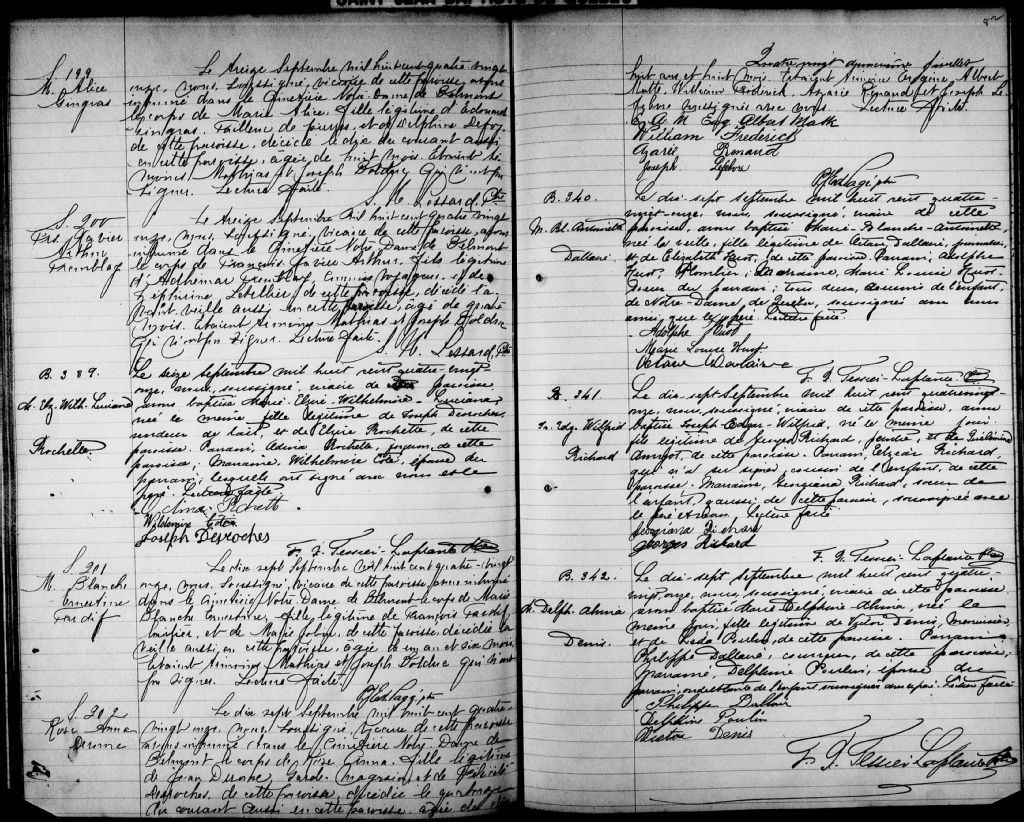 SAINT JEAN BAPTISTE DE QUEBEC
S. 199
M. Alice
Gingras
Le treize Septembre mil huit cent quatre-vingt
onze, nous, soussigné, vicaire de cette paroisse, avons
inhumé dans le cimetière Notre-Dame de Belmont
le corps de Marie Alice, fille légitime d'Edouard
Gingras, tailleur de pierres, et de Delphine
de cette paroisse, décédée le dix du courant aussi
en cette paroisse, âgée de huit mois. Etaient té-
moins, Mathias et Joseph Bolduc qui n'ont pu
signer. Lecture faite.
S. 200
Frs Xavier
Arthur
Tremblay
Le treize Septembre mil huit cent quatre vingt
onze, nous, soussigné, vicaire de cette paroisse, avons
inhumé dans le cimetière Notre Dame de Belmont
le corps de François Xavier Arthur, fils légitime
Tremblay, Commis voyageur, et de
Zéphirine Letellier, de cette paroisse, décédé l'a-
vant veille aussi en cette paroisse, âgé de quatre
mois. Etaient témoins Mathias et Joseph Bolduc
qui n'ont pu signer. Lecture faite.
B. 389.
Rochette
Le seize septembre mil huit cent quatre-vingt-
onze, nous, soussigné, vicaire de paroisse,
avons baptisé Marie-Elzire-Wilhelmine-Luciana
née le même, fille légitime de Joseph Desroches
vendeur de lait, et de Elzire Rochette, de cette
paroisse. Parrain, Rochette, de cette
paroisse; Marraine, Wilhelmine Côté, épouse du
parrain; lesquels ont signé avec nous et le
père. Lecture faite.
Joseph Desroches
F. J. Tessier-Laplante Ptre
S. 201
M. Blanche
Ernestine
Tardif
Le dix sept Septembre mil huit cent quatre-vingt
onze, nous, soussigné, vicaire de cette paroisse avons inhumé
dans le cimetière Notre Dame de Belmont le corps de Marie
Blanche Ernestine, fille légitime de François Tardif
et de de cette paroisse, décédée la
veille aussi en cette paroisse, âgée de un an et six mois.
Etaient témoins Mathias et Joseph Bolduc qui n'ont
pu signer. Lecture faite.
S. 202
Rose Anna
Le dix sept Septembre mil huit cent quatre-
vingt onze, nous, soussigné, vicaire de cette paroisse
avons inhumé dans le Cimetière Notre-Dame de
Belmont le corps de Rose Anna, fille légitime
de Jean Garde-magasin, et de
Desroches, de cette paroisse, décédée le quatorze
du courant aussi en cette paroisse, âgée de
82
Quatre vingt deuxième feuillet
huit ans et huit mois. Etaient témoins Albert
William Frederick, Azarie Renaud et Joseph Le-
febvre soussignés avec nous. Lecture faite.
William Frederick
Azarie Renaud
Joseph Lefebvre
B. 340.
M. Bl. Antoinette
Dallaire
Le dix-sept septembre mil huit cent quatre-
vingt-onze, nous, soussigné, vicaire de cette
paroisse, avons baptisé Marie-Blanche-Antoinette,
née la veille, fille légitime de Octave Dallaire,
et de Elizabeth Huot, de cette paroisse. Parrain, Adolphe
Huot, Plombier; Marraine, Marie Louise Huot
soeur du parrain; tous deux, cousins de l'enfant,
de Notre-Dame, de Québec, soussignés avec nous
ainsi que le père. Lecture faite.
Adolphe Huot
Marie Louise Huot
F. J. Tessier-Laplante Ptre
B. 341.
Jos. Edg. Wilfrid
Richard
Le dix-sept Septembre mil huit cent quatrevingt
onze, nous, soussigné, vicaire de cette paroisse, avons
baptisé Joseph-Edgar-Wilfrid, né le même jour
fils légitime de Georges Richard, peintre, et de
de cette paroisse. Parrain, Elzéar Richard,
qui n'a su signer, cousin de l'enfant, de cette
paroisse. Marraine, Georgiana Richard, soeur de
l'enfant, aussi de cette paroisse, soussignée avec
le père et nous. Lecture faite.
Georgiana Richard
Georges Richard
F. J. Tessier-Laplante Ptre
B. 342.
M. Delph. Alma
Denis.
Le dix-sept Septembre mil huit cent quatre-
vingt-onze, nous, soussigné, vicaire de cette paroisse
avons baptisé Marie Delphine Alma, née le
même jour, fille légitime de Victor Denis, Menuisier
et de Poulin, de cette paroisse. Parrain
Philippe Dallaire, de cette paroisse;
Marraine, Delphine Poulin, épouse du
parrain, tante de l'enfant, soussignés avec père. Lecture faite
Philippe Dallair
Delphine Poulin
Victor Denis
F. J. Tessier-Laplante Ptre